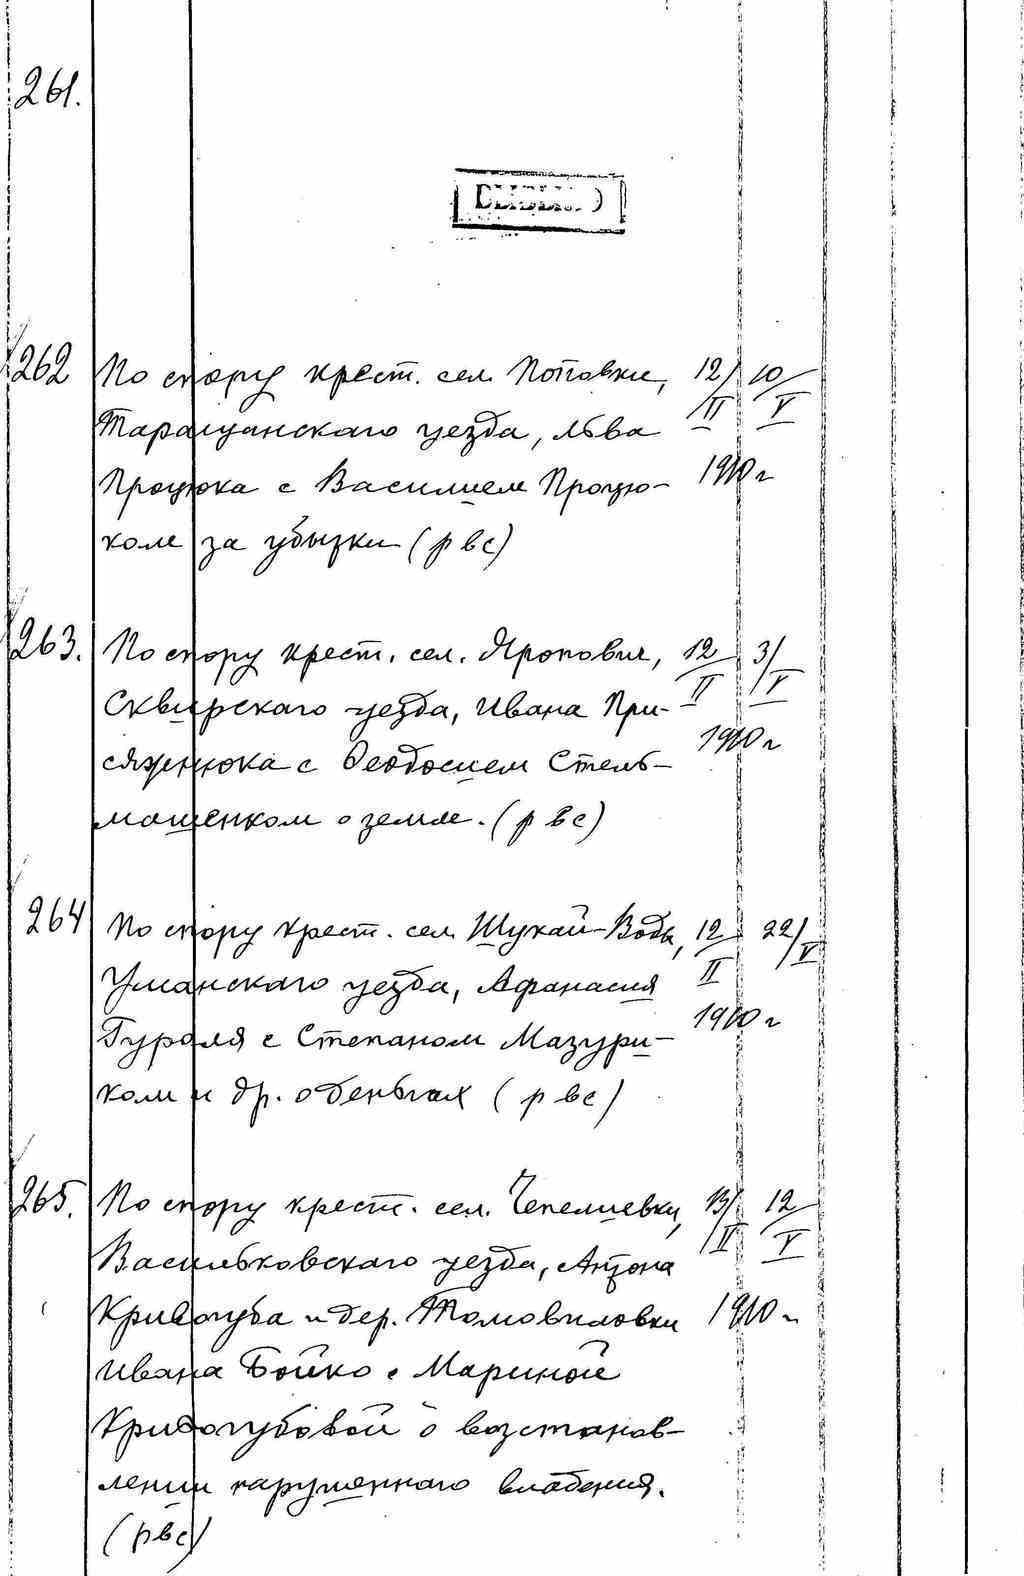 261.
262 По спору крест. сел. Поповки, 12/II 10/V
Таращанскаго уезда, Льва
Процюка с Василием Процю- 1910 г
ком за убытки (рвс)
263. По спору крест. сел. Яропович, 12/II 3/V
Сквирскаго уезда, Ивана При-
сяжнюка с Феодосием Стель- 1910 г
машенком о земле. (рвс)
264 По спору крест. сел. Шукай-Воды, 12/II 22/V
Уманскаго уезда, Афанасия
Гураля с Степаном Мазури- 1910 г
ком и др. о деньгах (рвс)
265. По спору крест. сел. Чепелиевки, 13/II 12/V
Васильковскаго уезда, Антона
Кривогуба и дер. 1910 г
Ивана Бойко с Мариной
Кривогубовой о возстанов-
лении нарушеннаго владения.
(рвс)